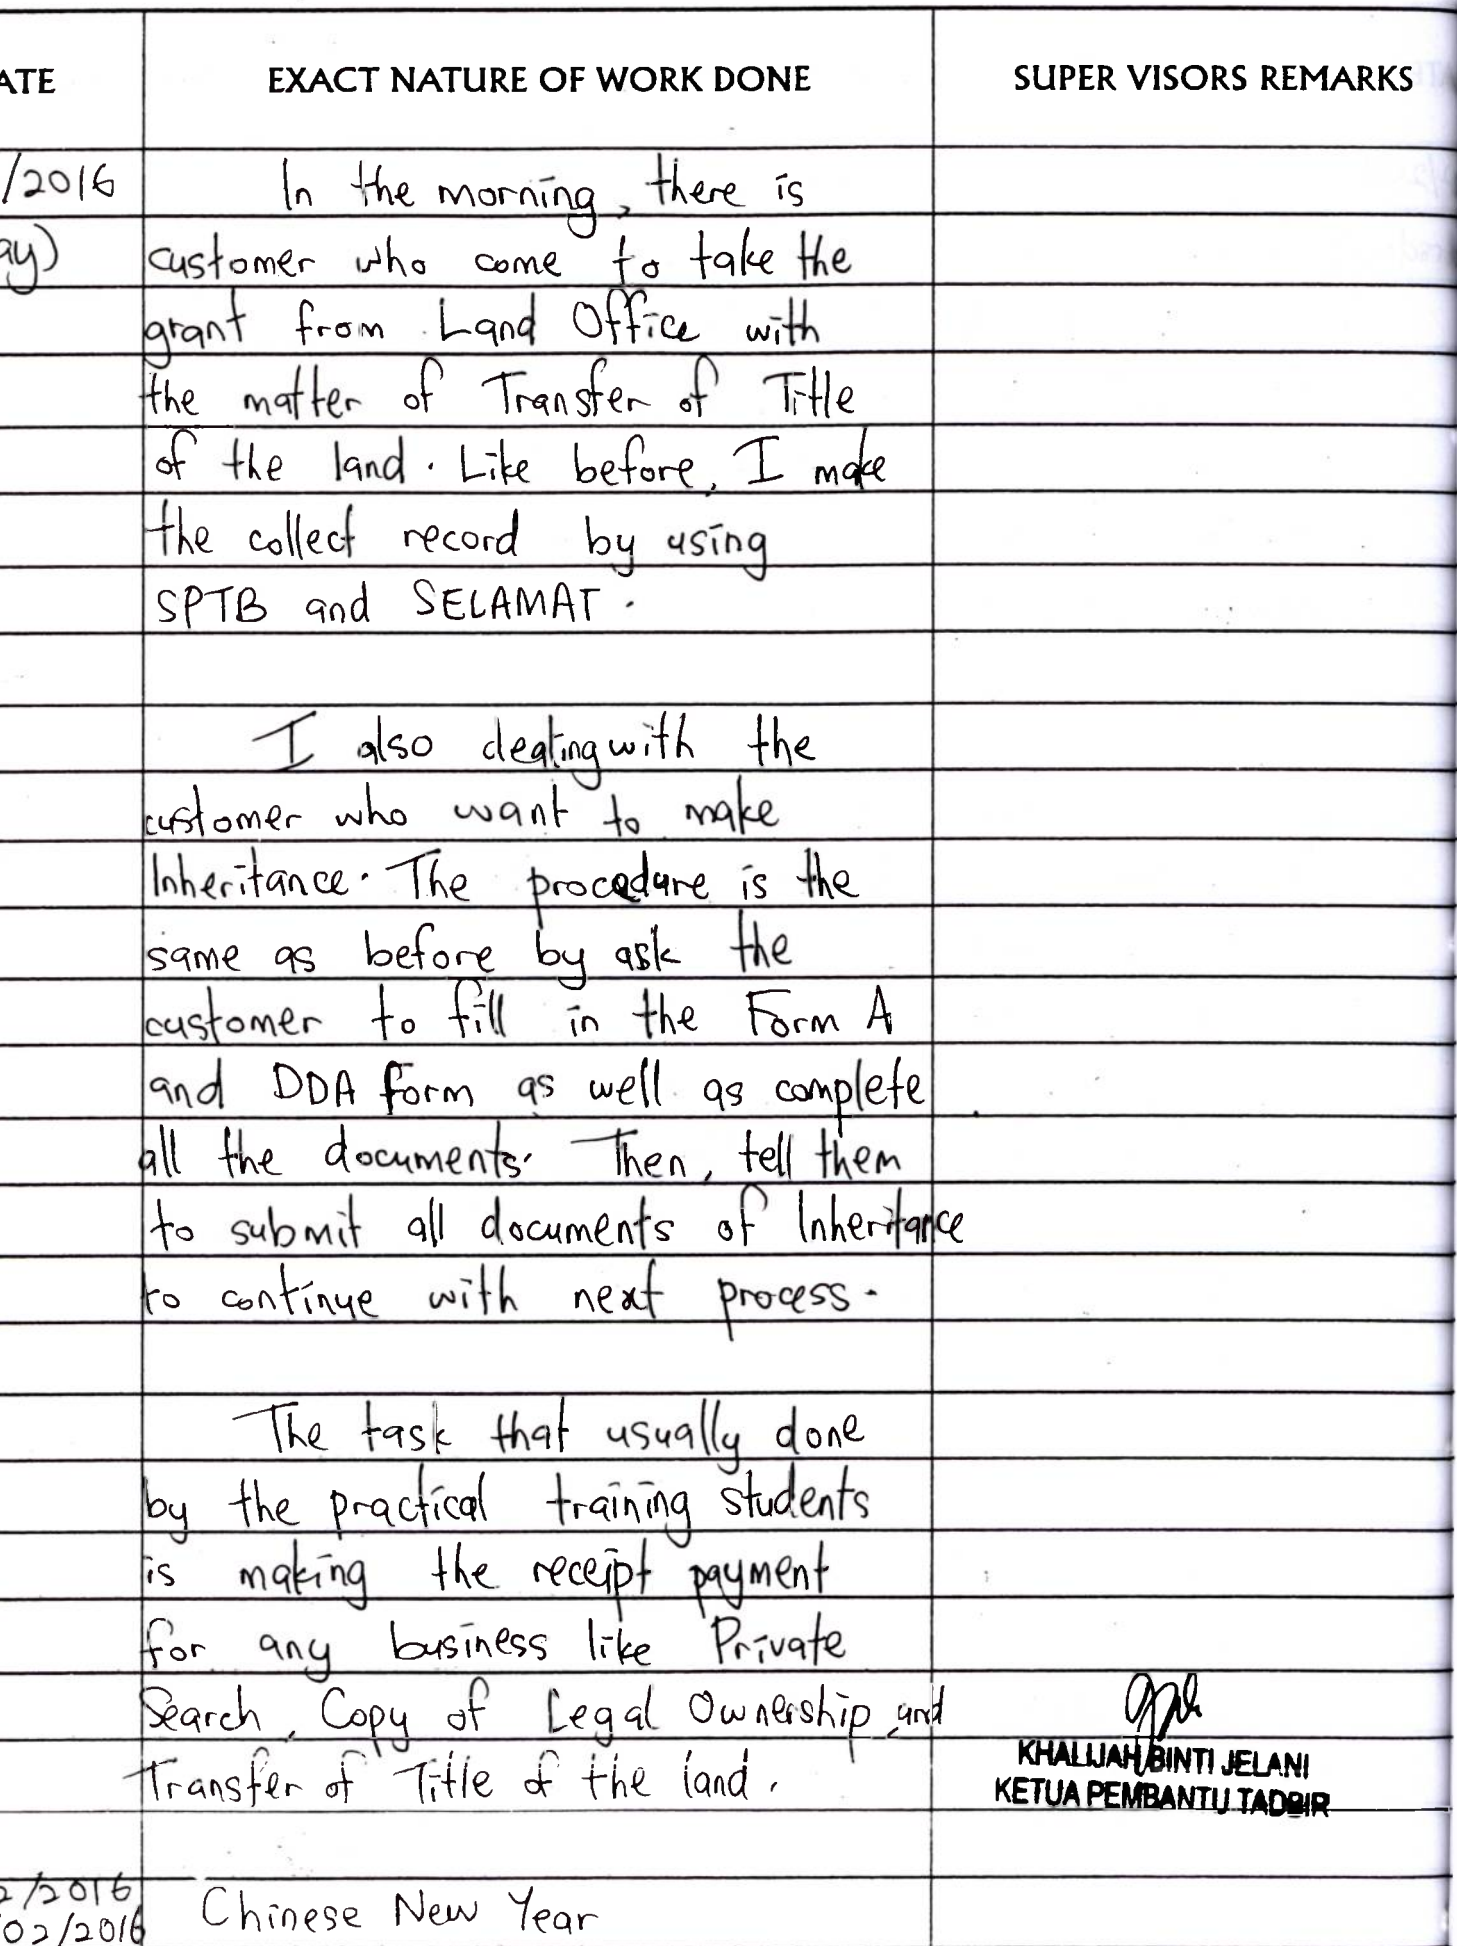 ATE EXACT NATURE OF WORK DONE SUPER VISORS REMARKS
/2016 In the morning, there is
ay) customer who come to take the
grant from Land Office with
the matter of Transfer of Title
of the land. Like before, I make
the collect record by using
SPTB and SELAMAT.
I also dealing with the
customer who want to make
Inheritance. The procedure is the
same as before by ask the
customer to fill in the Form A
and DDA form as well as complete
all the documents. Then, tell them
to submit all documents of Inheritance
to continue with next process.
The task that usually done
by the practical training students
is making the receipt payment
for any business like Private
Search, Copy of Legal Ownership, and
Transfer of Title of the land.
KHALIJAH BINTI JELANI
KETUA PEMBANTU TADBIR
2/2016 Chinese New Year
02/2016